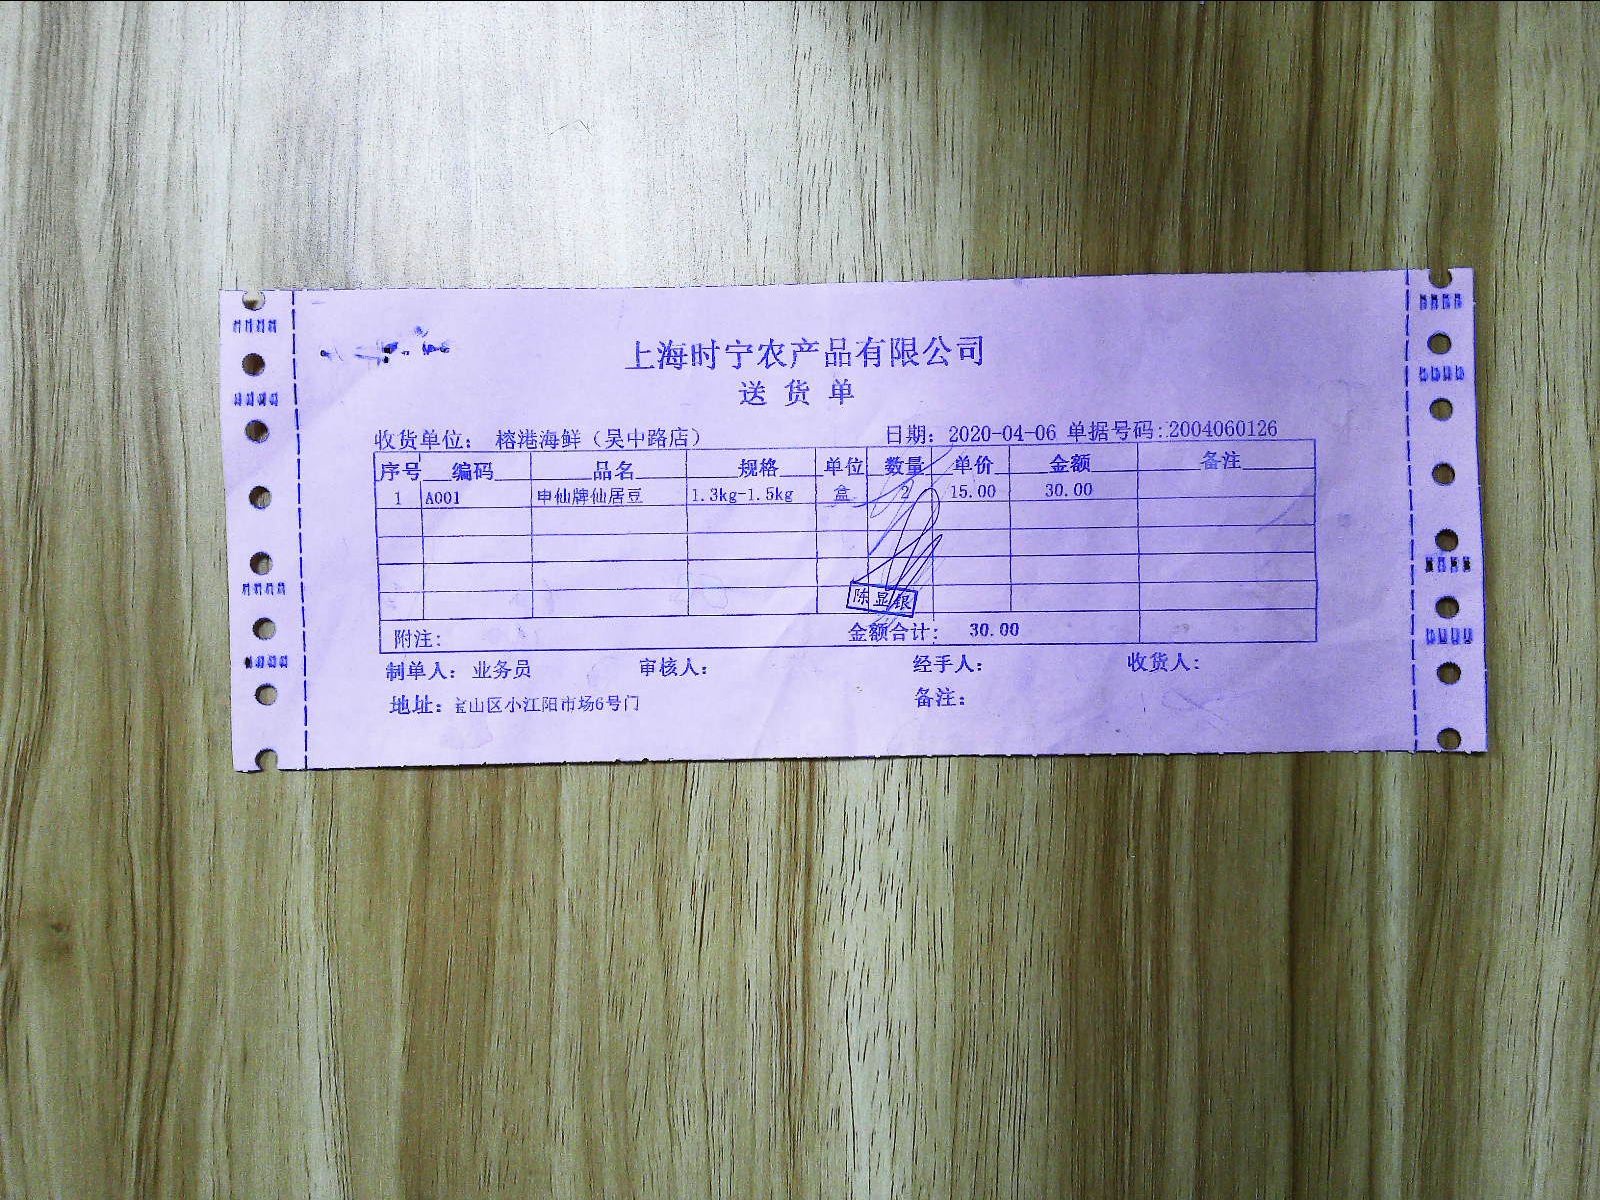 上海时宁农产品有限公司
送货单
收货单位： 榕港海鲜（吴中路店） 日期：2020-04-06 单据号码:2004060126
序号 编码 品名 规格 单位 数量 单价 金额 备注
1 A001 申仙牌仙居豆 1.3kg-1.5kg 盒 2 15.00 30.00
陈显银
附注: 金额合计: 30.00
制单人: 业务员 审核人: 经手人: 收货人:
地址: 宝山区小江阳市场6号门 备注: